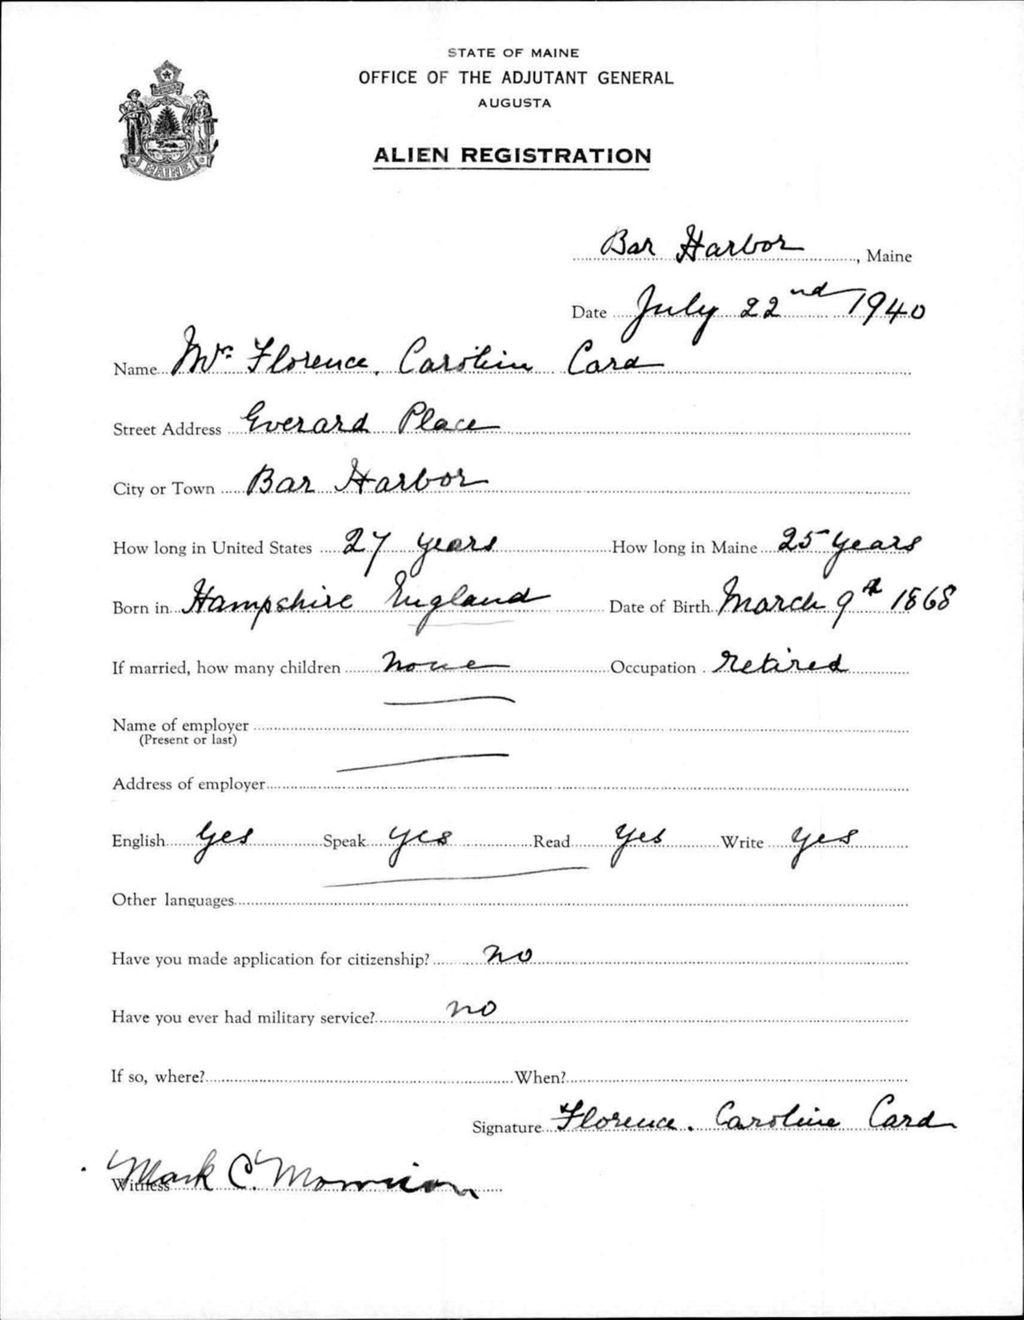 STATE OF MAINE
OFFICE OF THE ADJUTANT GENERAL
AUGUSTA
ALIEN REGISTRATION
MAINE
Bar Harbor, Maine
Date July 22nd 1940
Name Mrs Florence. Caroline Card
Street Address Everard Place
City or Town Bar Harbor
How long in United States 27 years How long in Maine 25 years
Born in Hampshire England Date of Birth March 9th 1868
If married, how many children none Occupation retired
Name of employer
(Present or last)
Address of employer
English Yes Speak yes Read Yes Write yes
Other languages
Have you made application for citizenship? no
Have you ever had military service? no
If so, where? When?
Signature Florence. Caroline Card
Witness Mark C. Morrison